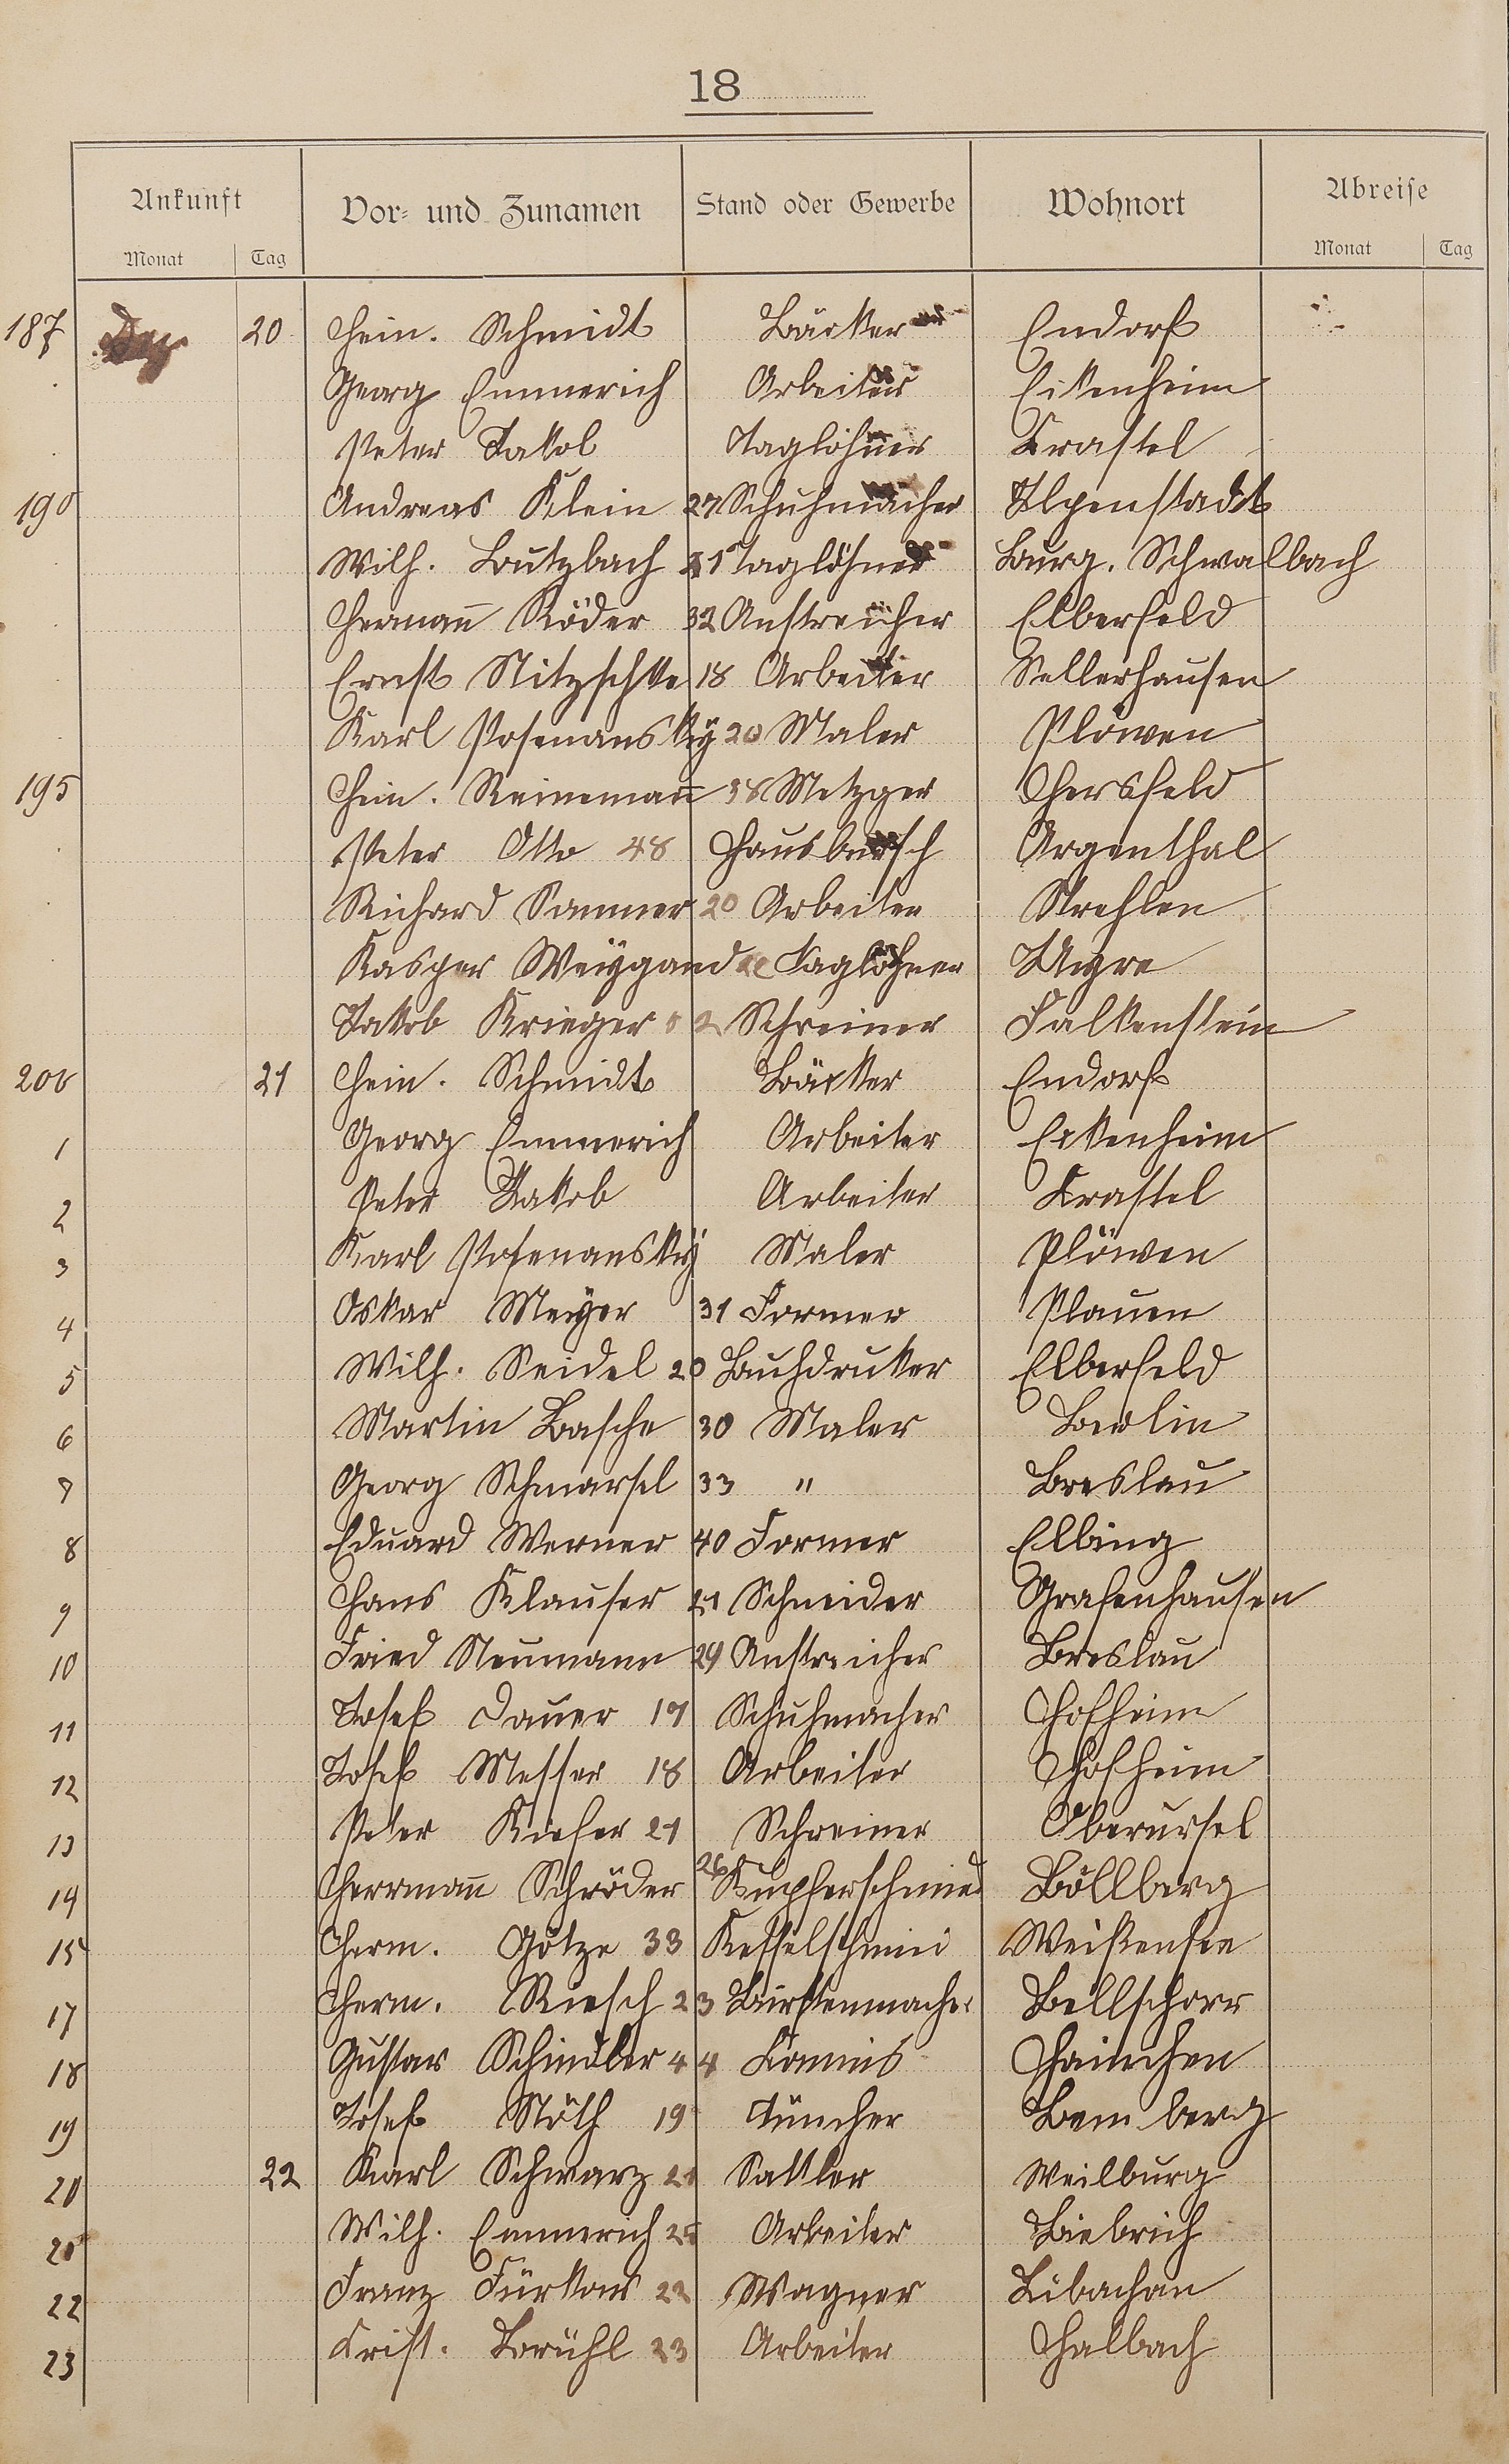 18
Ankunft Vor- und Zunamen Stand oder Gewerbe Wohnort Abreise
Monat Tag Monat Tag
187 Dez 20 Hein. Schmidt Bäcker Endorf
Georg Emmerich Arbeiter Eckenheim
Peter Jakob Taglöhner Krastel
190 Andreas Klein 27 Schuhmacher Ilpenstadt
Wilh. Butzbach 21 Taglöhner Burg. Schwalbach
Hermann̄ Röder 32 Anstreicher Elberfeld
Ernst Nitzschke 18 Arbeiter Sellerhausen
Karl Posenansky 20 Maler Plöwen
195 Hein. Reinemann̄ 38 Metzger Hersfeld
Peter Otto 48 Hausbursch Argenthal
Richard Sommer 20 Arbeiter Strehlen
Kasper Weygand Taglöhner
Jakob Krieger 52 Schreiner Falkenstein
200 21 Hein. Schmidt Bäcker Endorf
1 Georg Emmerich Arbeiter Eckenheim
2 Peter Jakob Arbeiter Krastel
3 Karl Posenansky Maler Plöwen
4 Oskar Meyer 31 Former Plauen
5 Wilh. Seidel 20 Buchdruker Elberfeld
6 Martin Basche 30 Maler Berlin
7 Georg Schmarsel 33 " Breslau
8 Eduard Werner 40 Former Elbing
9 Hans Klauser 21 Schneider Grafenhausen
10 Fried Neumann 29 Anstreicher Breslau
11 Josef Dauer 17 Schuhmacher Hofheim
12 Josef Messer 18 Arbeiter Hofheim
13 Peter Kiefer 21 Schreiner Oberursel
14 Herrmann̄ Schröder 26 Kupferschmied Böllberg
15 Herm. Götze 33 Kesselschmid Weißensee
17 Herm. Riesch 23 Bürstenmacher Bellschorr
18 Gustav Schindler 44 Kommis Hainchen
19 Josef Nöth 19 Tüncher Bemberg
20 22 Karl Schwarz 21 Sattler Weilburg
Wilh. Emmerich 25 Arbeiter Biebrich
22 Franz 22 Wagner Libachan
23 Krist. Brühl 23 Arbeiter Halbach